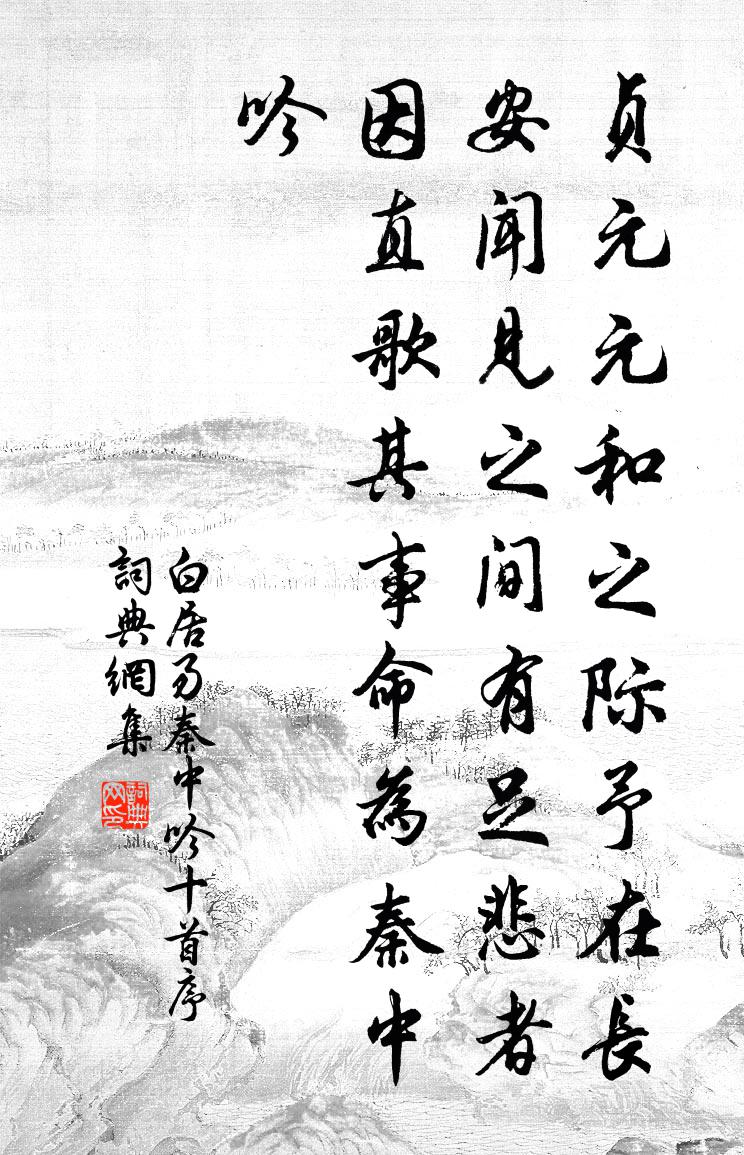 贞元元和之际予在長
安闻見之间有足悲者
因直歌其事命為秦中
吟
白居易秦中吟十首序
詞典網集
詞典
网印